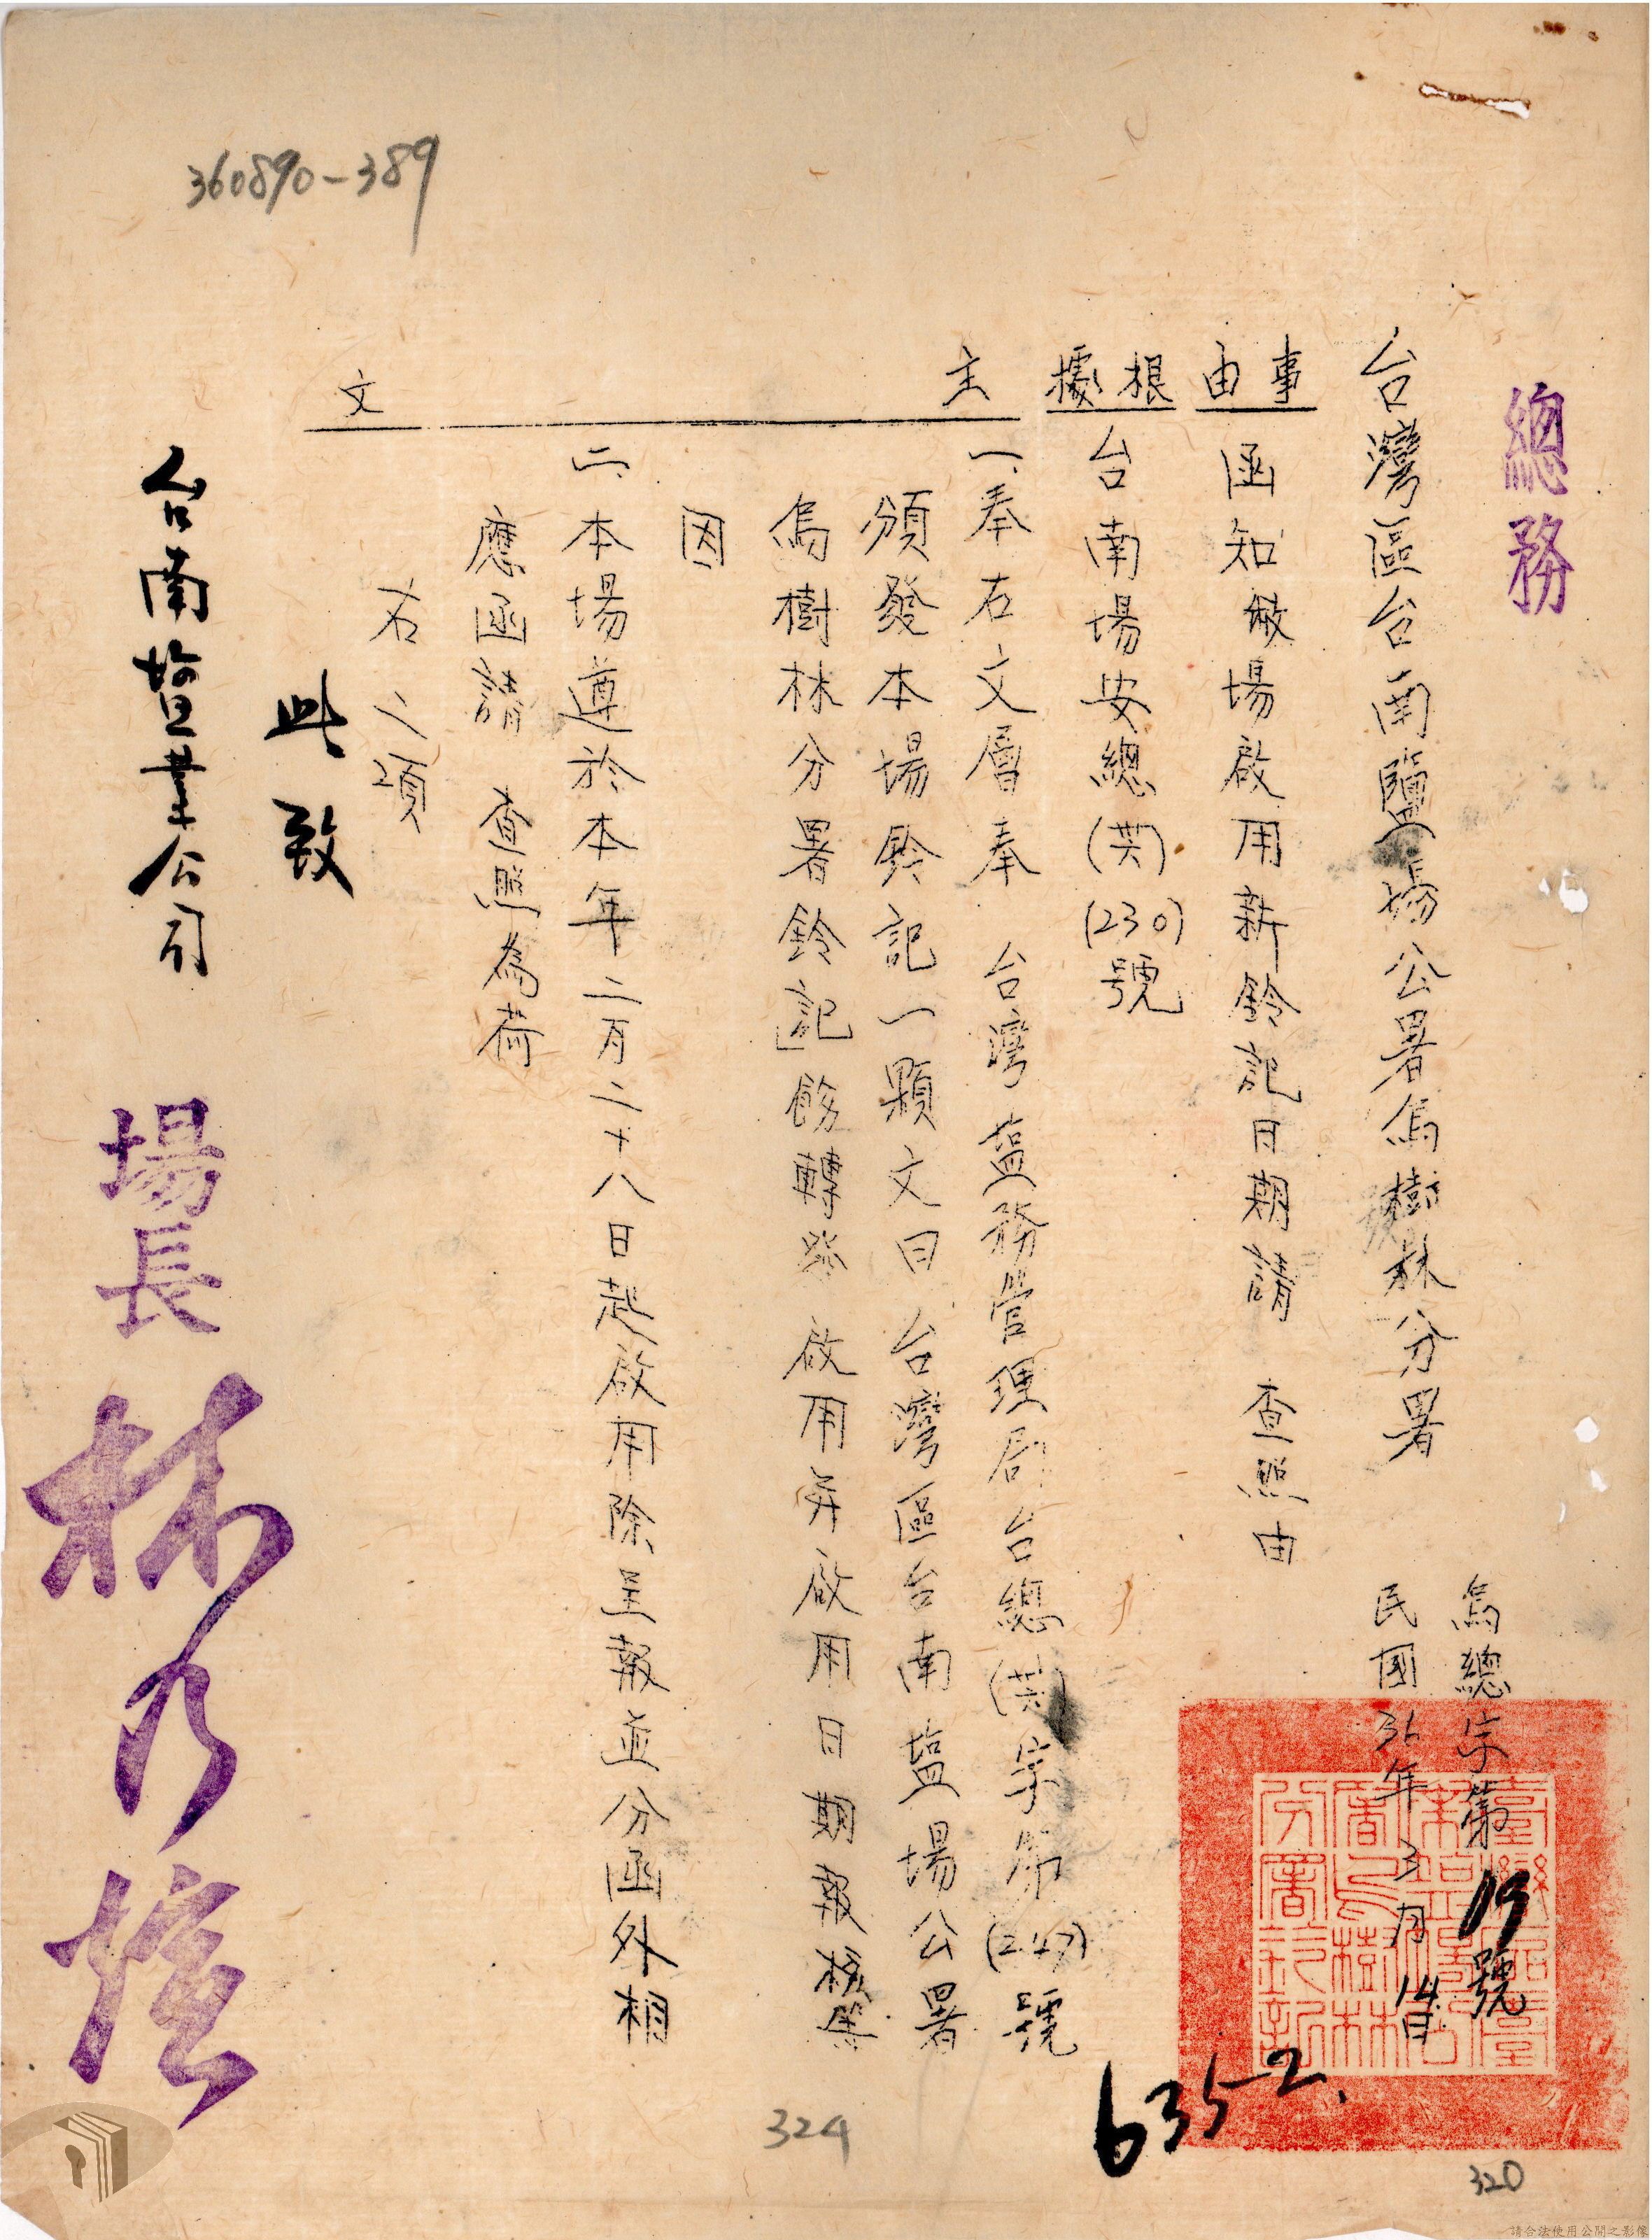 360890-389
總務
台灣區台南鹽場公署烏樹林分署
烏總字第19號
民國36年3月14日
事由
函知敝場啟用新鈐記日期請 查照由
根據
台南場安總(共)(230)號
主
一、奉右文層奉 台灣塩務管理局台總(共)字第(247)號
頒發本場鈐記一顆文曰 台灣區台南塩場公署
烏樹林分署鈐記」飭轉發 啟用并啟用日期報核等
因
二、本場遵於本年二月二十八日起啟用除呈報並分函外相
應函請 查照為荷
文
右二項
此致
台南塩業公司
場長
6352.
324
320
請合法使用公開之影像